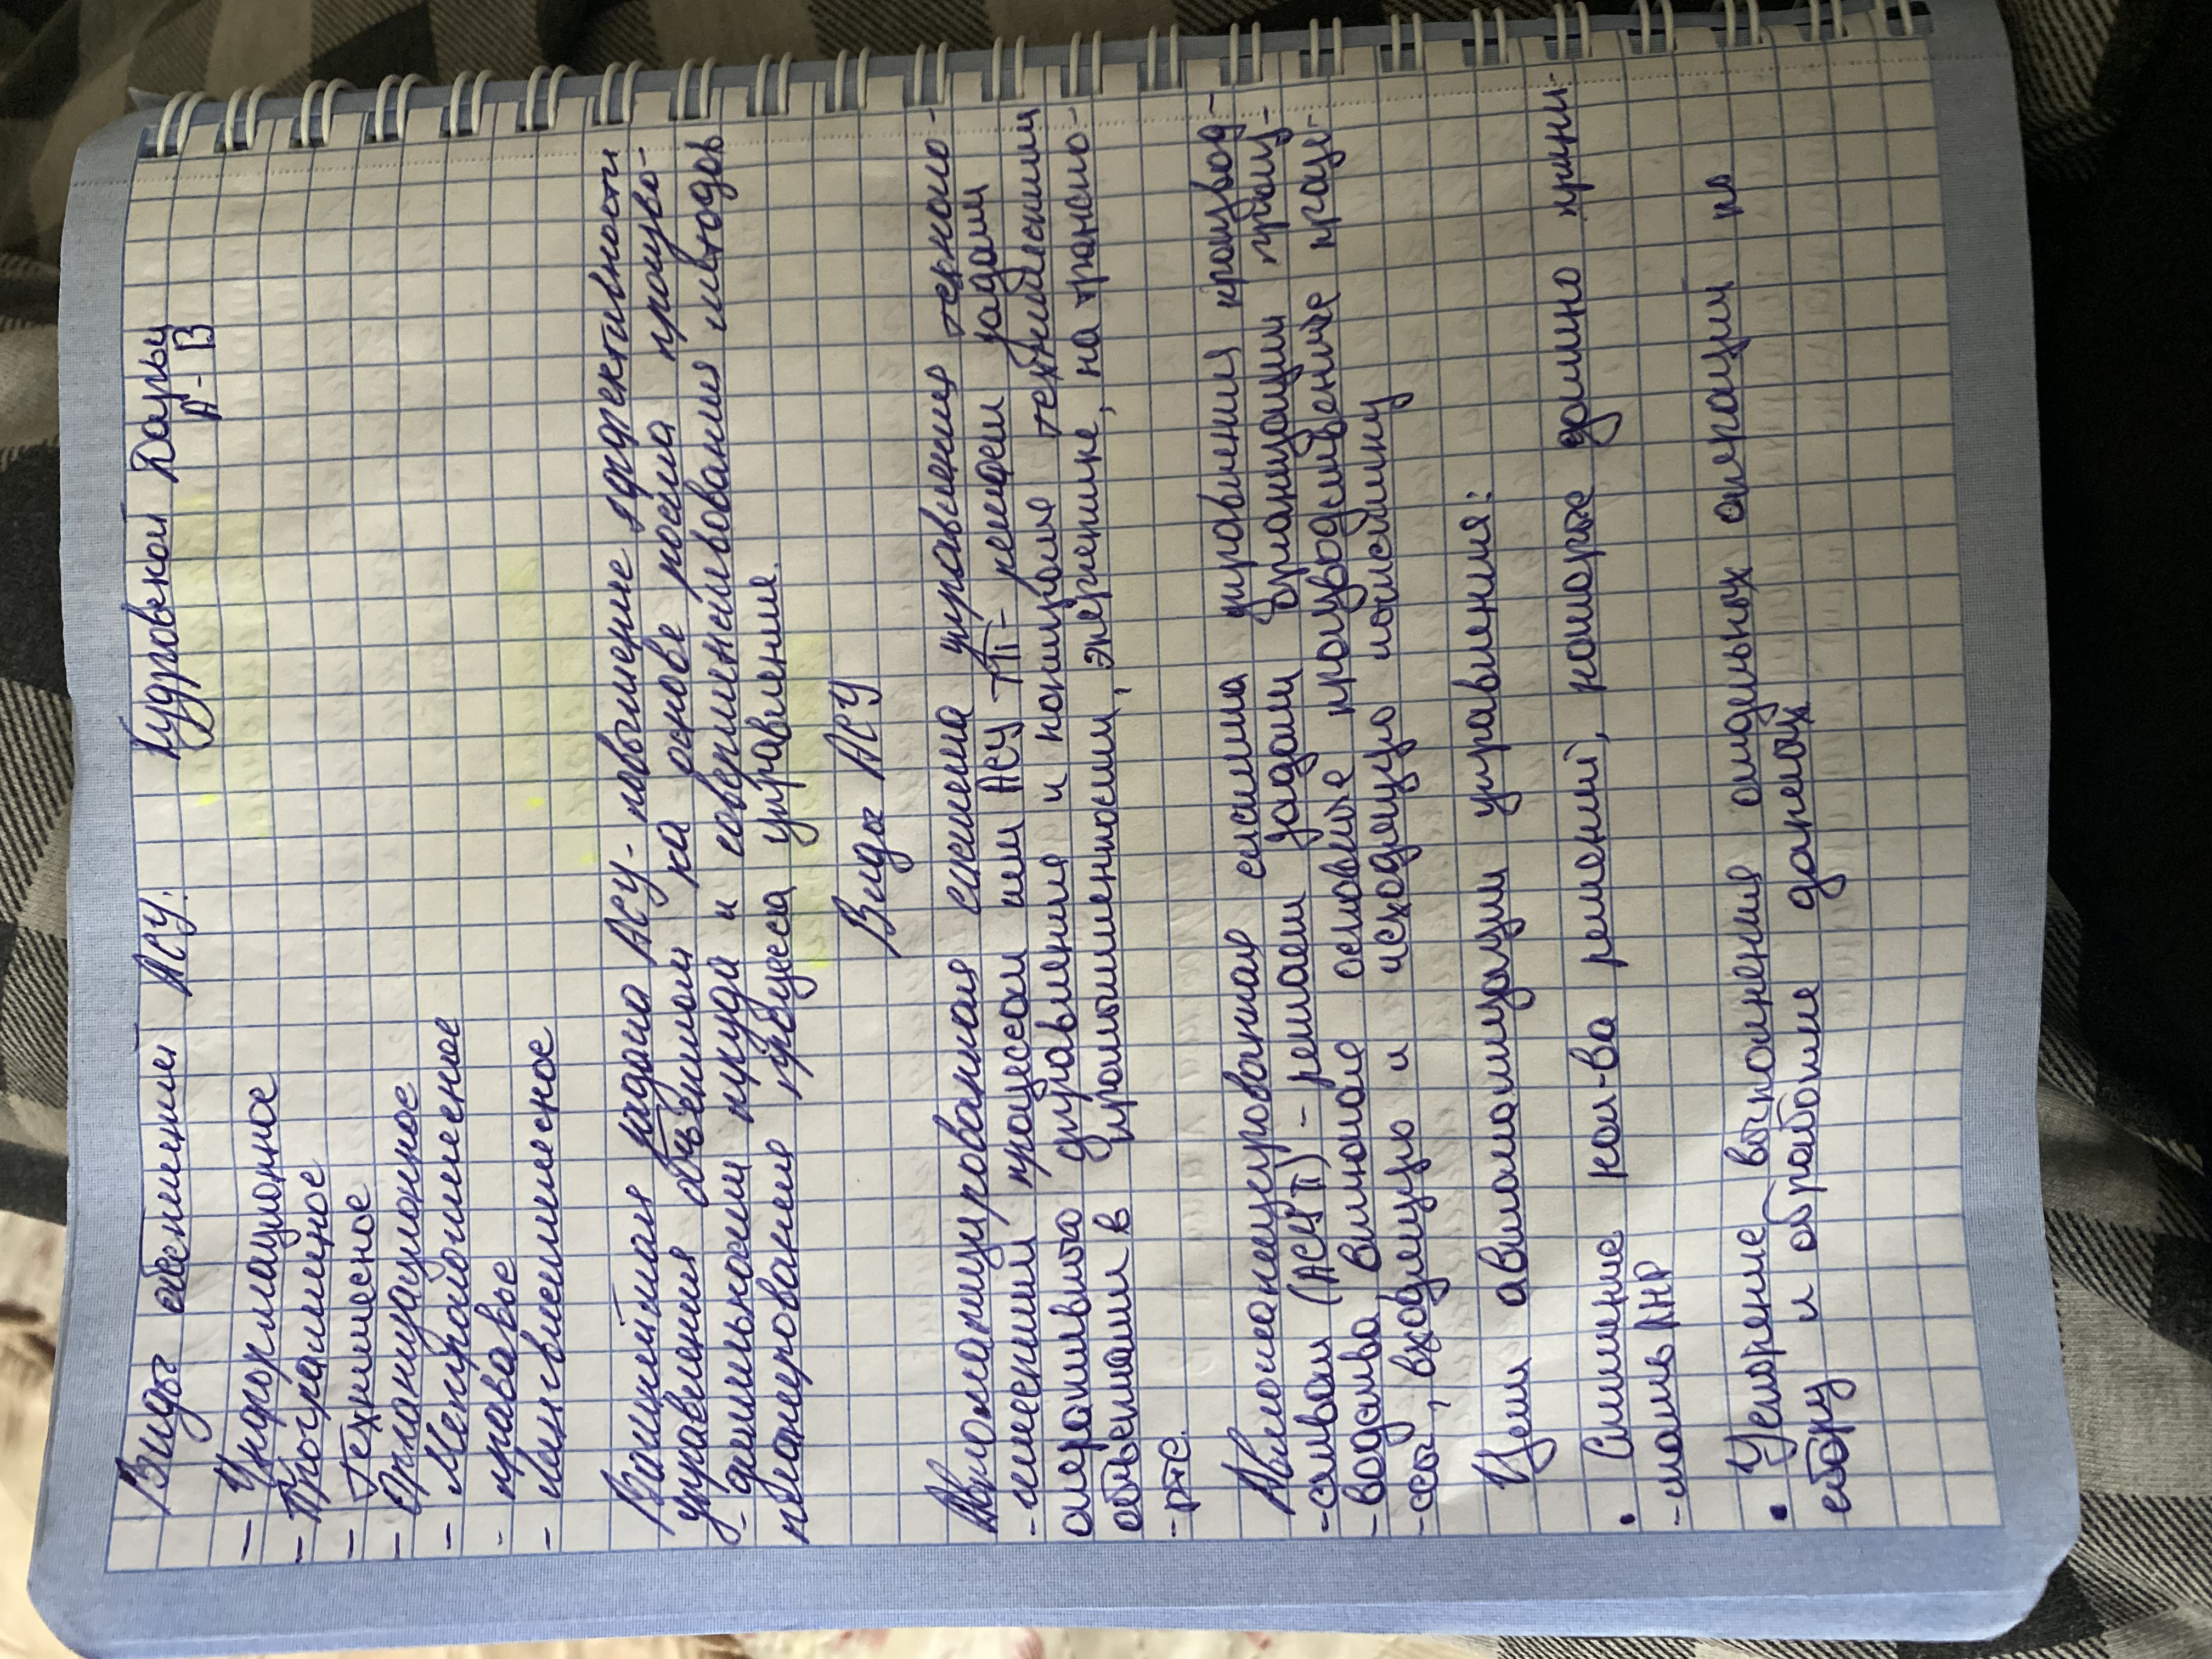 Виды обеспечения АСУ. Кудровской Дарьи
А-В
- Информационное
- Программное
- Техническое
- Организационное
- Метрологическое
- правовые
- Лингвистическое
Важнейшая задача АСУ - повышение эффективности
управления объектом на основе роста произво-
- дительности труда и совершенствования методов
планирования процесса управления.
Виды АСУ
Автоматизированная система управления техноло-
- гическим процессом или АСУ ТП - решает задачи
оперативного управления и контроля техническими
объектами в промышленности, энергетике, на транспо-
- рте.
Автоматизированная система управления производ-
- ством (АСУ П) - решает задачи организации произ-
- водства, включая основные производственные проце-
- ссы, входящую и исходящую логистику
Цели автоматизации управления:
• Снижение кол-ва решений, которые должно прини-
- мать ЛПР
• Ускорение выполнения отдельных операций по
сбору и обработке данных